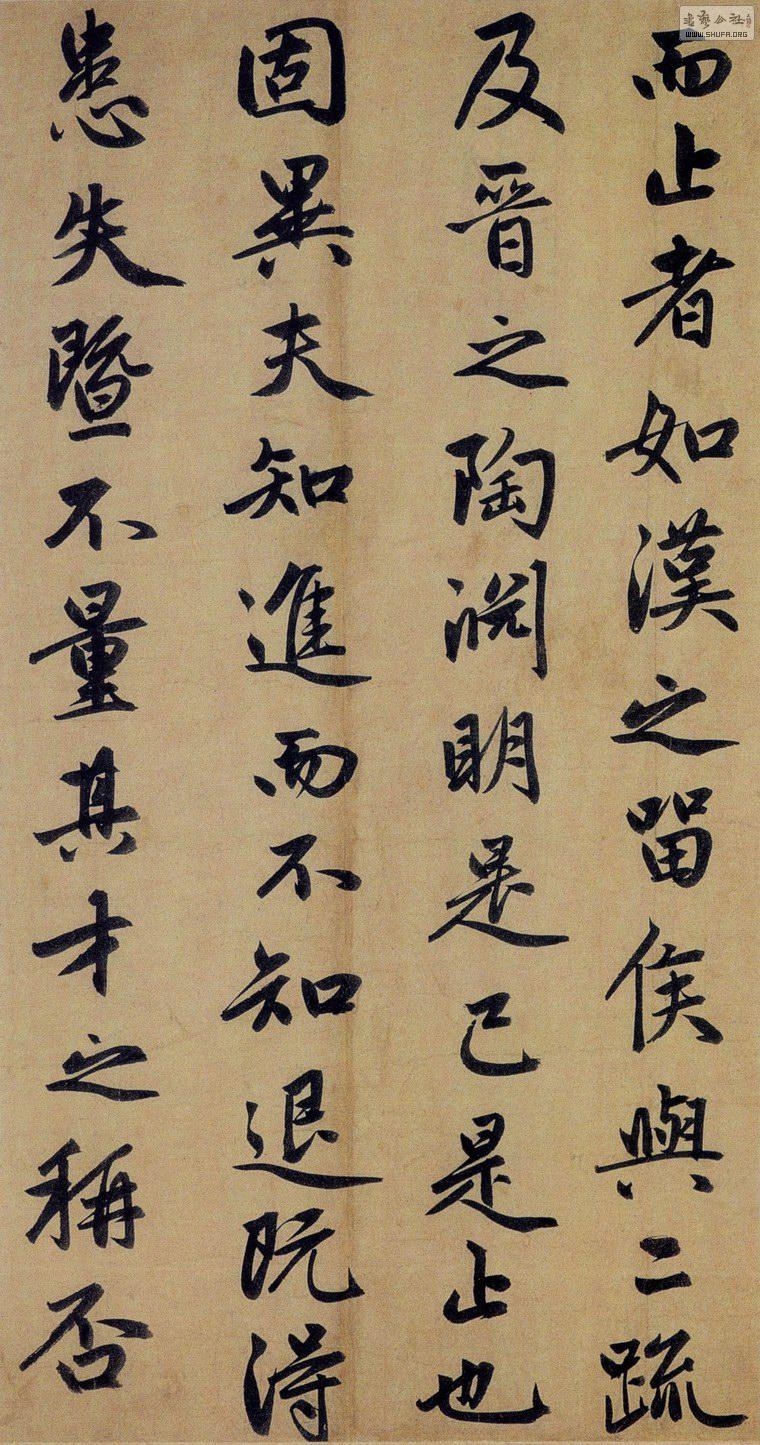 而止者如漢之留侯與二疏
及晋之陶淵明是已是止也
固異夫知進而不知退既得
患失暨不量其才之稱否
書藝公社
WWW.SHUFA.ORG